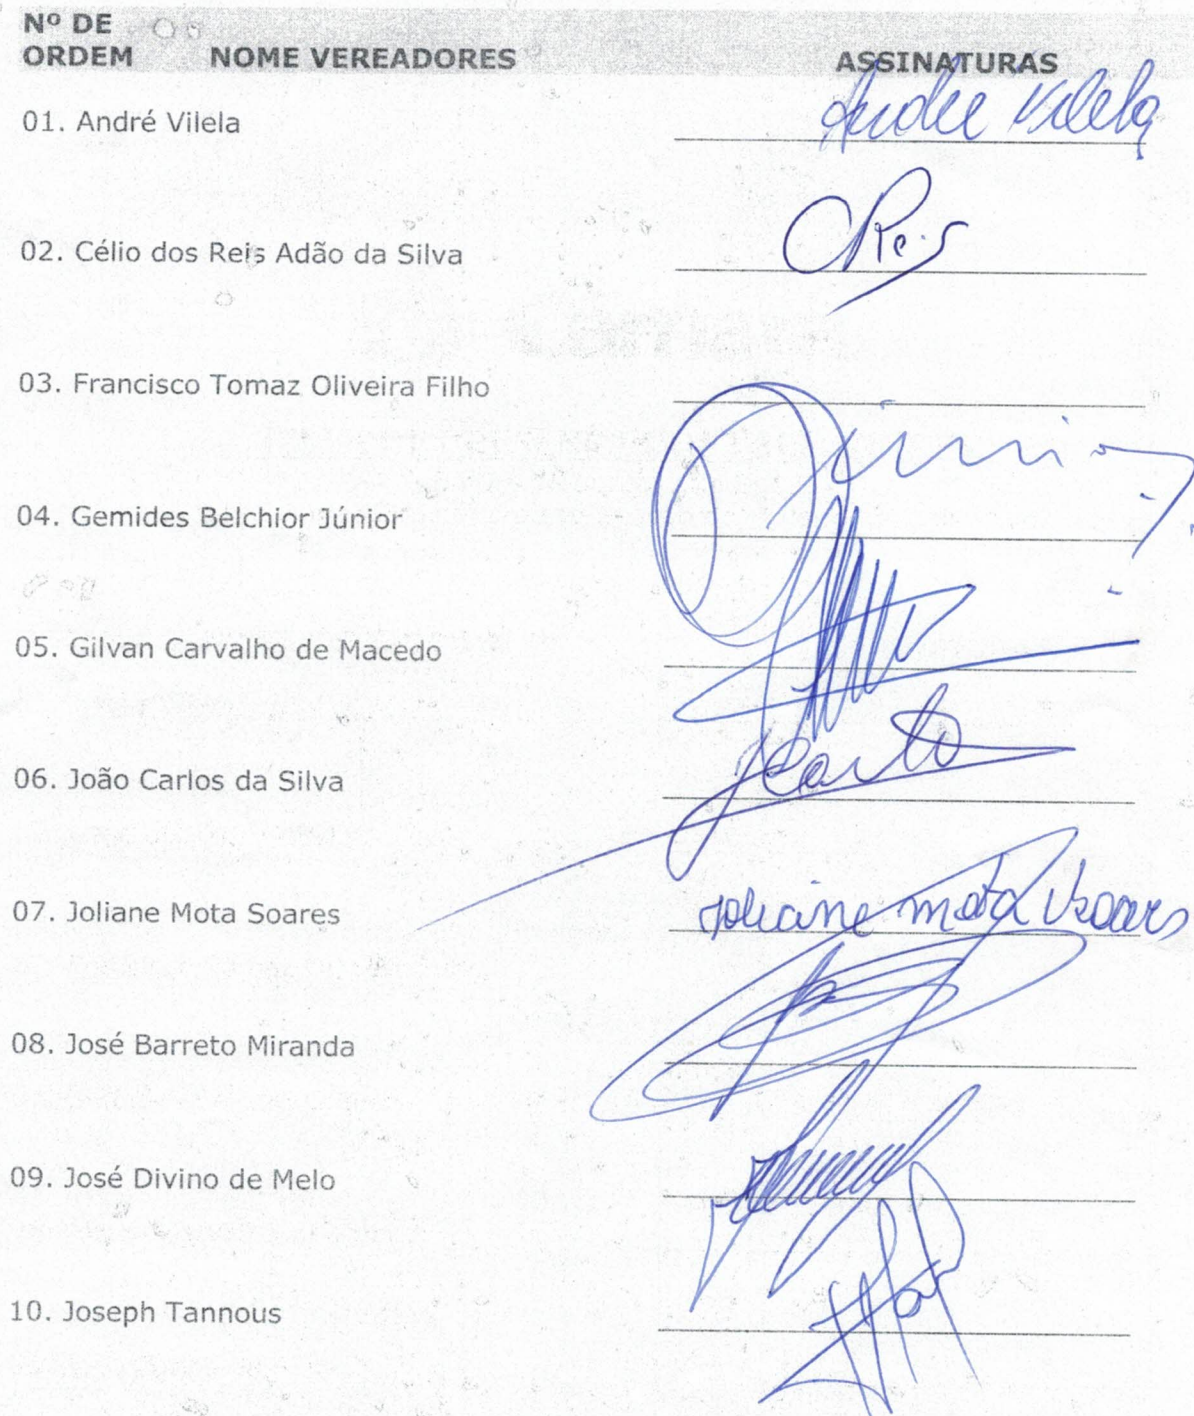 Nº DE
ORDEM NOME VEREADORES ASSINATURAS
01. André Vilela André Vilela
02. Célio dos Reis Adão da Silva CReis
03. Francisco Tomaz Oliveira Filho
04. Gemides Belchior Júnior Júnior
05. Gilvan Carvalho de Macedo
06. João Carlos da Silva JCarlo
07. Joliane Mota Soares Joliane Mota Soares
08. José Barreto Miranda
09. José Divino de Melo
10. Joseph Tannous